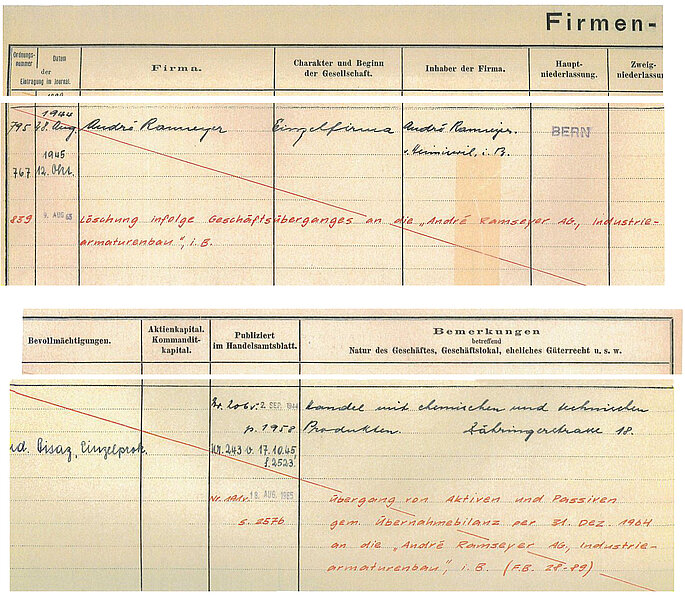 Firmen-
Ordnungs-
nummer
Datum
der
Eintragung im Journal.
Firma.
Charakter und Beginn
der Gesellschaft.
Inhaber der Firma.
Haupt-
niederlassung.
Zweig-
niederlassun
1944
795 18. Aug. André Ramseyer Einzelfirma André Ramseyer. BERN
1945 i. B.
767 12. Okt.
839 9. AUG 65 Löschung infolge Geschäftsüberganges an die „André Ramseyer AG., Industrie-
armaturenbau", i. B.
Bevollmächtigungen.
Aktienkapital.
Kommandit-
kapital.
Publiziert
im Handelsamtsblatt.
Bemerkungen
betreffend
Natur des Geschäftes, Geschäftslokal, eheliches Güterrecht u. s. w.
Nr. 206 v. 2. SEP. 1944 Handel mit chemischen und technischen
p. 1958 Produkten. Zähringerstrasse 18.
Einzelprok. Nr. 243 v. 17.10.45,
S. 2523.
Nr. 191 v. 18. AUG. 1965 Übergang von Aktiven und Passiven
S. 2576 gem. Übernahmebilanz per 31. Dez. 1964
an die „André Ramseyer AG., Industrie-
armaturenbau", i. B. (F.B. 28-89)